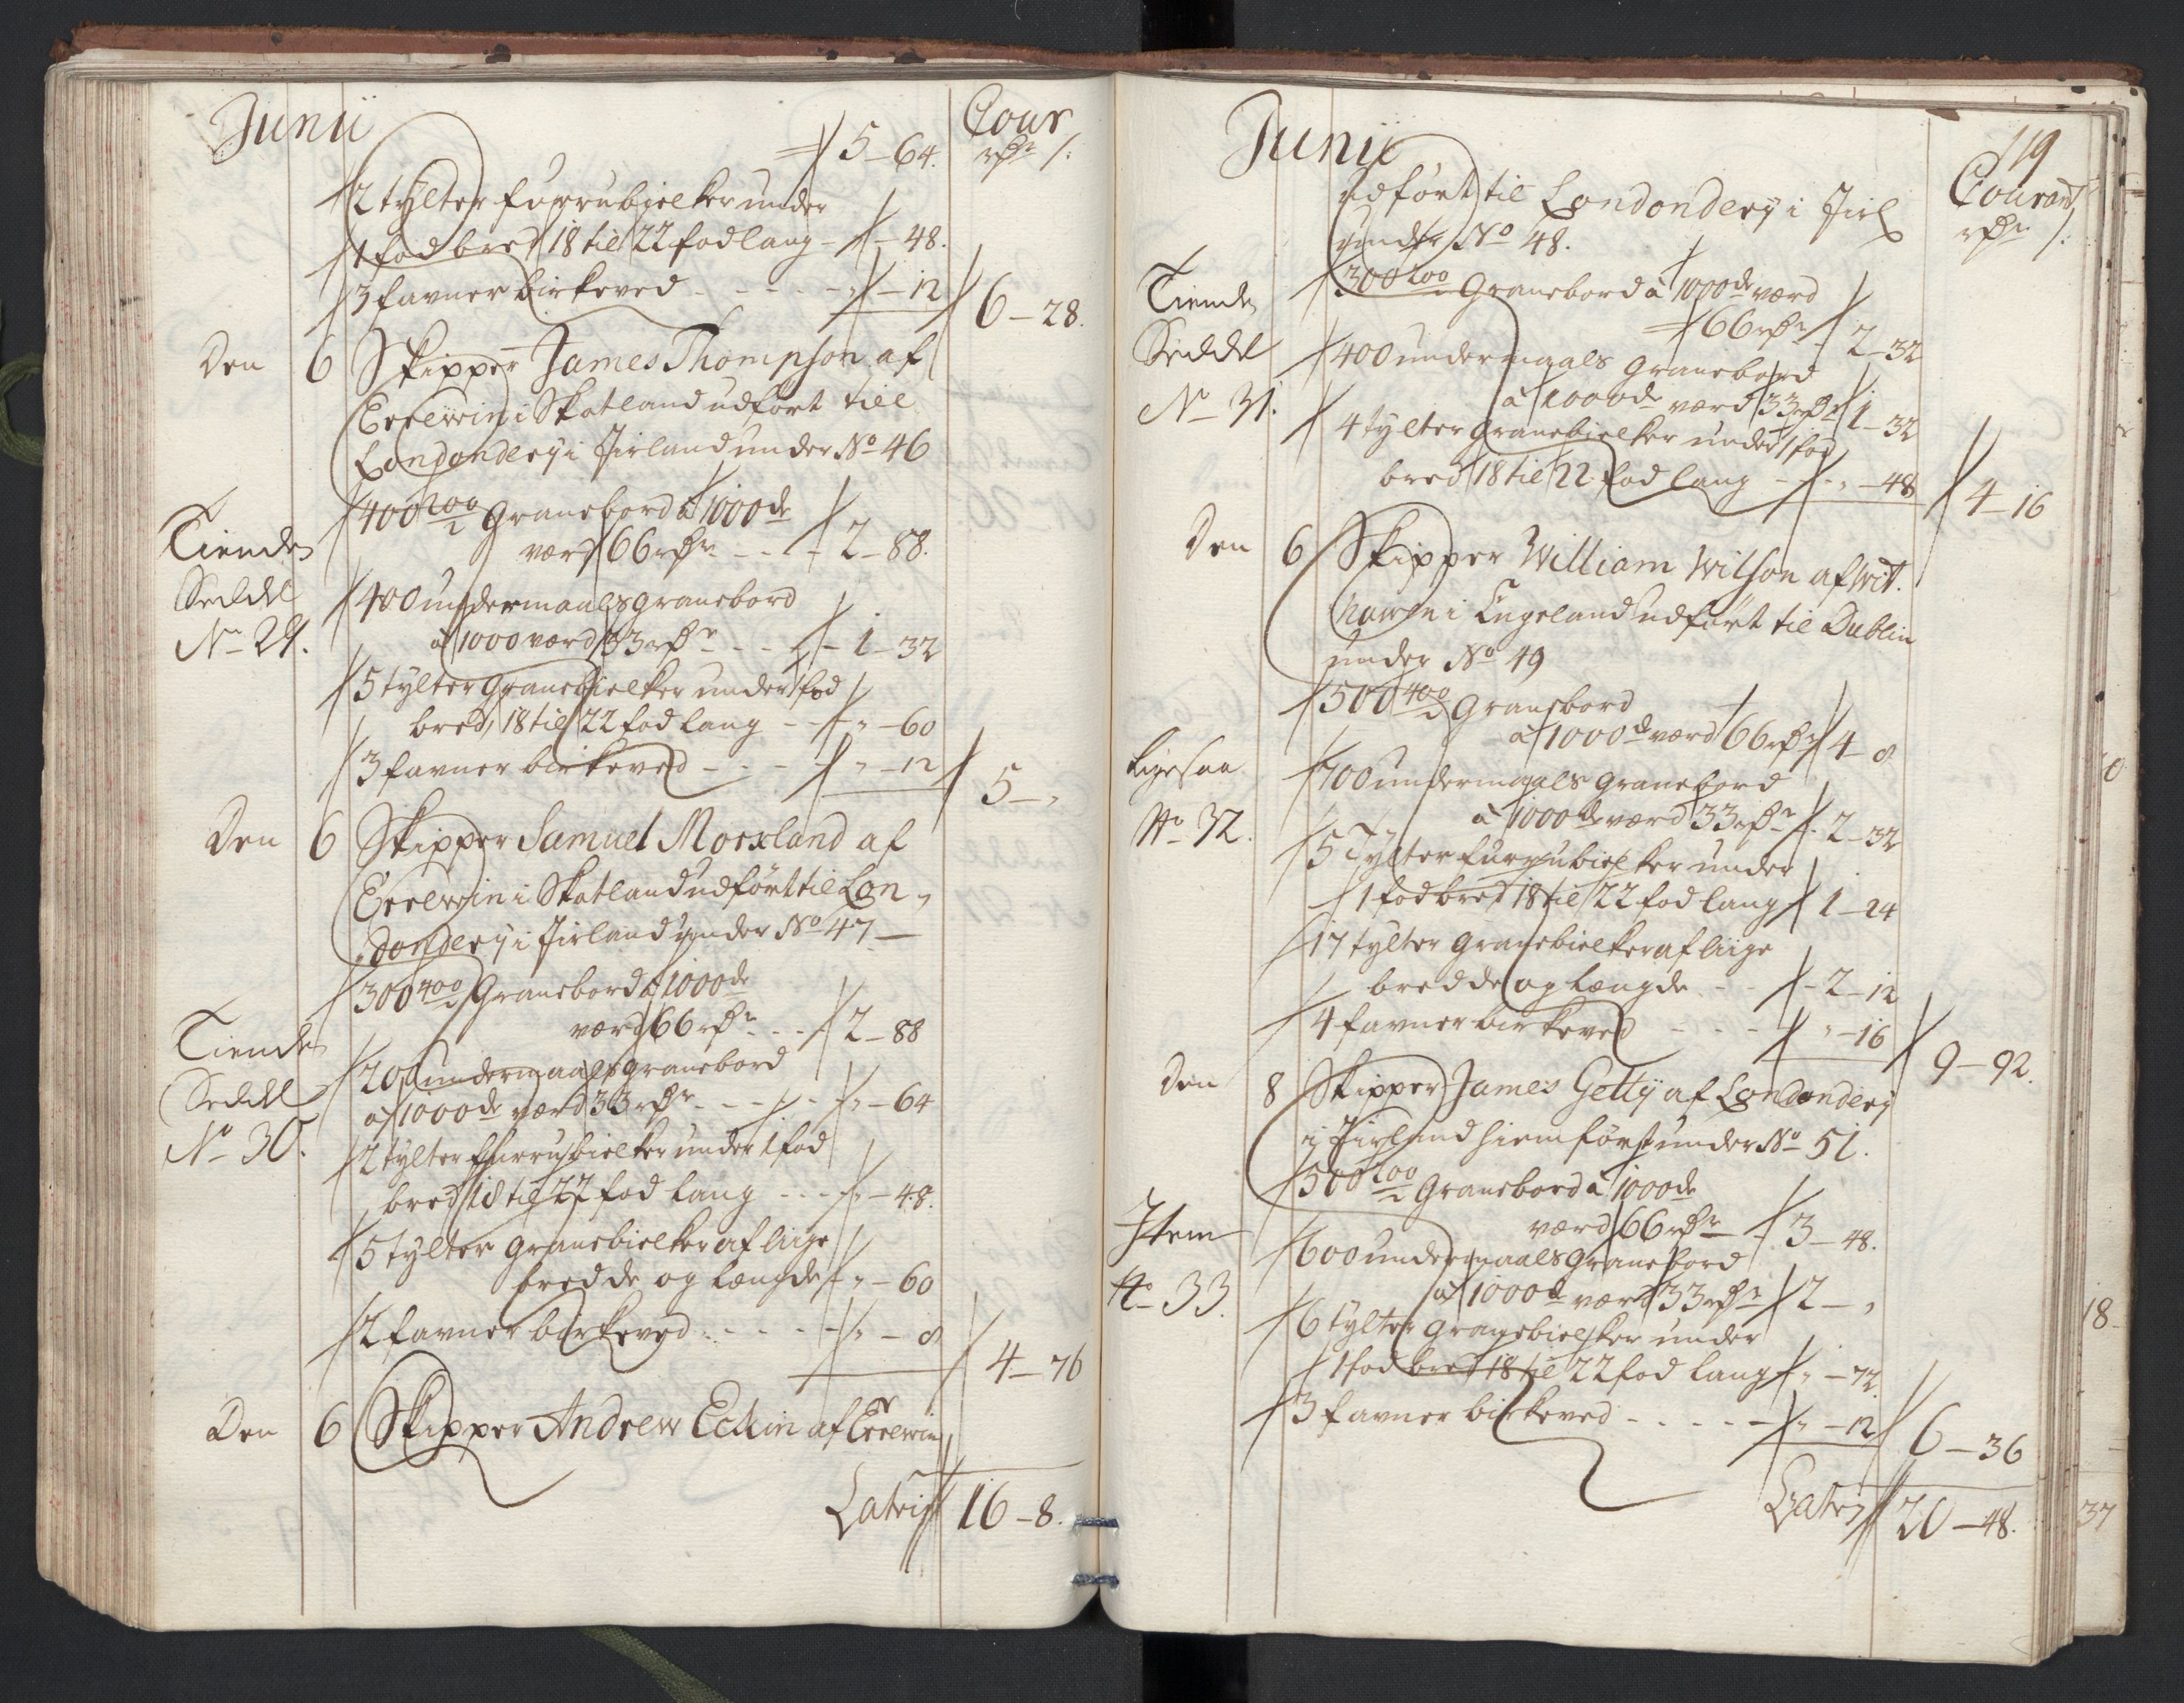 Junii
Cour
rdr /:
5-64.
2 tylter furrubielker under
1 fod bred 18 til 22 fod lang - - 48.
3 favner birkeved - - - - " - 12
6-28.
Den 6 Skipper James Thompson af
Eerewin i Skotland udført till
Londonderÿ i Jirland under No 46
400 200/2 Granebord a 1000de
værd 66 rdr - - - 2-88.
Tiende
Seddel
No 29.
400 undermaals granebord
a 1000 værd 33 rdr - - - 1-32
5 tylter Granebielker under 1 fod
bred, 18 til 22 fod lang - - " - 60
3 favner birkeved - - - - " - 12
5-"
Den 6 Skipper Samuel Morxland af
Eerewin i Skotland udført til Lon-
donderÿ i Jirland under No 47 -
300 400/2 Granebord a 1000de
værd 66 rdr - - - 2-88
Tiende
Seddel
No 30.
200 undermaals granebord
a 1000de værd 33 rdr - - - " - 64
2 tylter furrubielker under 1 fod
bred 18 til 22 fod lang - - - " - 48.
5 tylter Granebielker af liige
bredde og længde - " - 60
2 favner birkeved - - - - " - 8
4-76
Den 6 Skipper Andrew Eckin af Eerewin
Lateris 16-8.
119
Junii
Courant
rdr /:
udført til Londonderÿ i Jirl
under No 48.
Tiende
Seddel
No 31.
300 200/2 Granebord a 1000de værd
66 rdr 2-32
400 undermaals Granebord
a 1000de værd 33 rdr 1-32
4 tylter Granebielker under 1 fod
bred 18 til 22 fod lang - - " - 48
4-16
Den 6 Skipper William Wilson af Wit.
hawen i Engeland udført til Dublin
under No 49
500 400/2 Granebord
a 1000de værd 66 rdr 4-8
Ligesaa
No 32.
700 undermaals Granebord
a 1000de værd 33 rdr - 2-32
5 Tylter furrubielker under
1 fod bred 18 til 22 fod lang 1-24
17 tylter Granebielker af liige
bredde og længde - - - 2-12
4 favner birkeved - - - - " - 16
9-92.
Den 8 Skipper James Gettÿ af Londonderÿ
i Jirland hiemført under No 51.
500 200/2 Granebord a 1000de
værd 66 rdr - 3-48.
Item
No 33.
600 undermaals Granebord
a 1000de værd 33 rdr 2-"
6 tylter Granebielker under
1 fod bred 18 til 22 fod lang " - 72.
3 favner birkeved - - - - - " - 12
6-36
Lateris 20-48.
18-
37